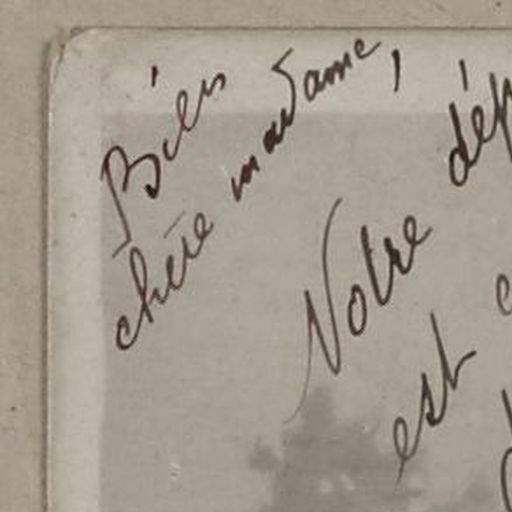 Bien
chère madame,
Notre dép
est